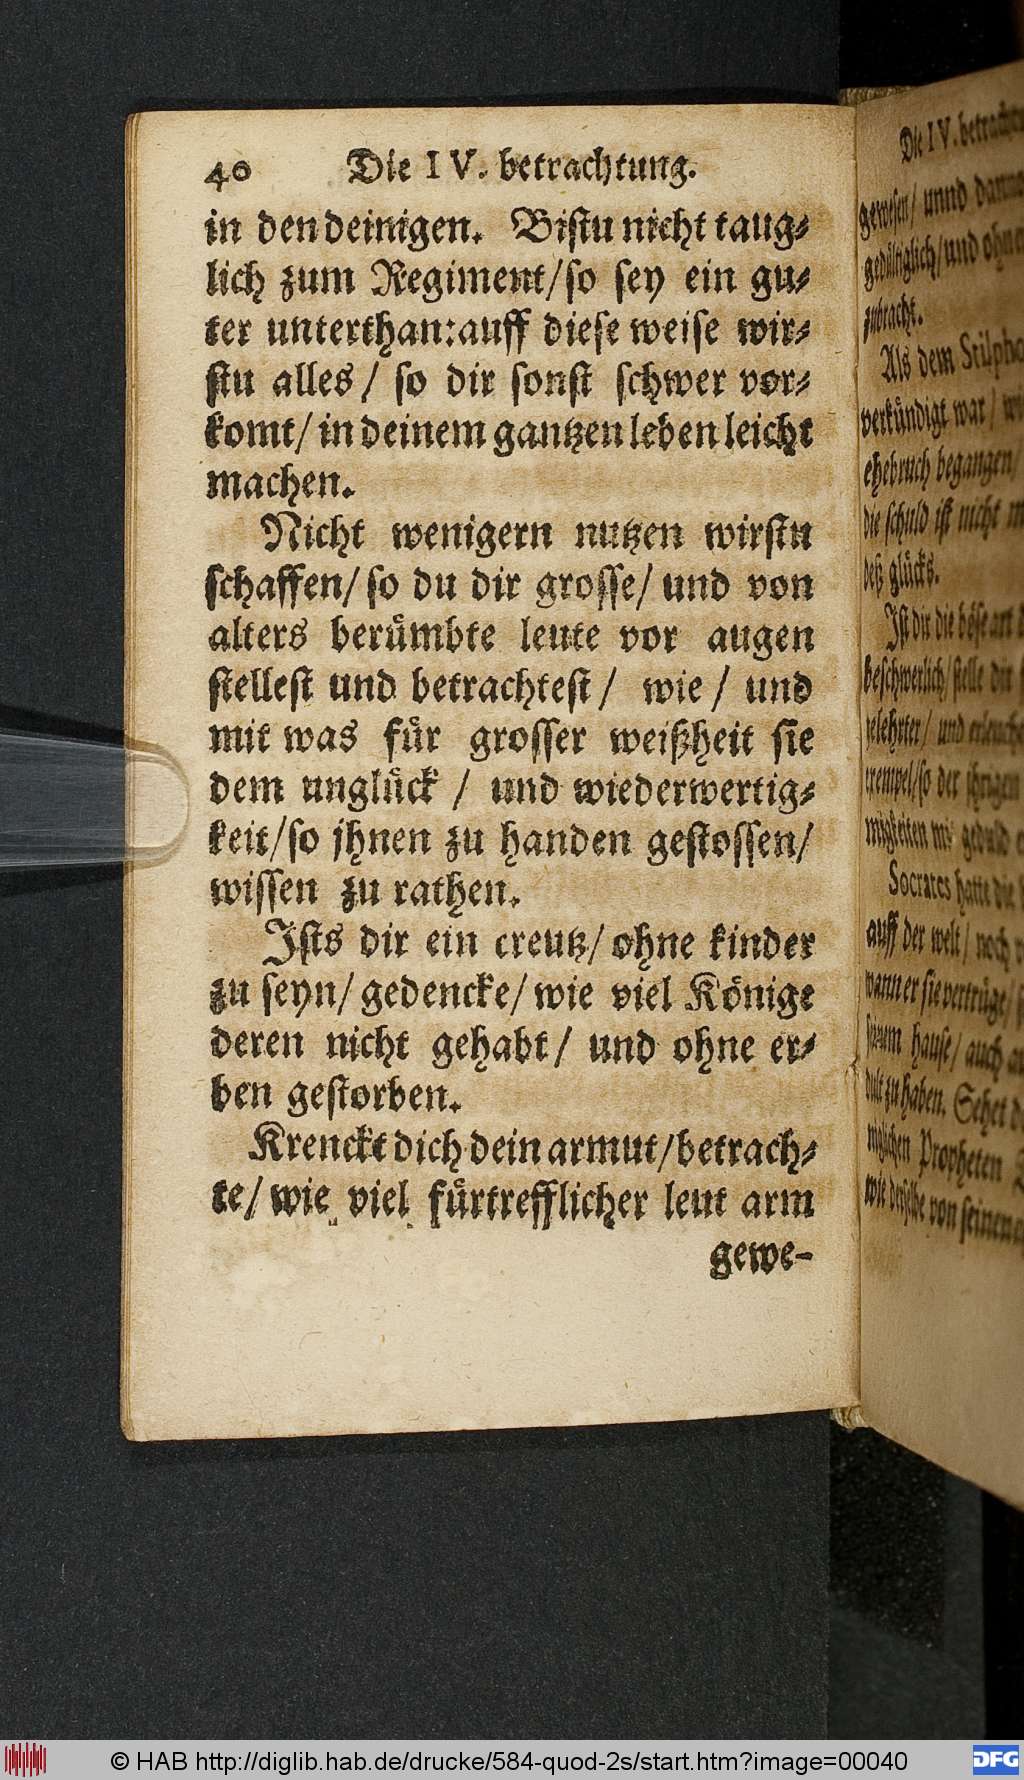 40 Die IV. betrachtung.
in den deinigen. Bistu nicht taug-
lich zum Regiment/so sey ein gu-
ter unterthan:auff diese weise wir-
stu alles / so dir sonst schwer vor-
komt/ in deinem gantzen leben leicht
machen.
Nicht wenigern nutzen wirstu
schaffen/ so du dir grosse/ und von
alters berümbte leute vor augen
stellest und betrachtest / wie / und
mit was für grosser weißheit sie
dem unglück / und wiederwertig-
keit/so jhnen zu handen gestossen/
wissen zu rathen.
Ists dir ein creutz/ ohne kinder
zu seyn/ gedencke/ wie viel Könige
deren nicht gehabt / und ohne er-
ben gestorben.
Krenckt dich dein armut/betrach-
te/ wie viel fürtrefflicher leut arm
gewe-
Die IV.
gewesen/ unnd
gedültiglich/und
zubracht.
Als dem
verkündigt war/
ehebruch begangen/
die schuld ist nicht
deß glücks.
Ist dir die böse art
beschwerlich/ stelle dir
gelehrter/ und
exempel/so der jhrigen
mit
Socrates hatte die
auff der welt/ noch
wann er sie vertrüge/
seinem hause/ auch
dult zu haben. Sehet
Propheten
wie derselbe von seinem
© HAB http://diglib.hab.de/drucke/584-quod-2s/start.htm?image=00040
DFG